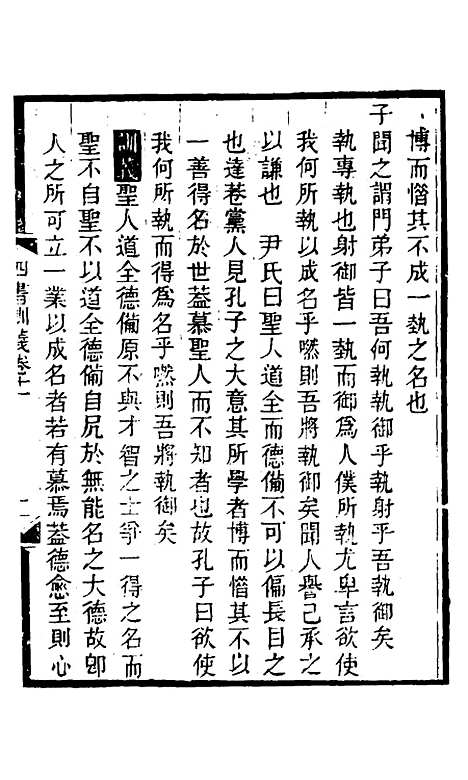 博而惜其不成一埶之名也
子聞之謂門弟子曰吾何執執御乎執射乎吾執御矣
執專執也射御皆一埶而御爲人僕所執尤卑言欲使
我何所執以成名乎然則吾將執御矣聞人譽己承之
以謙也 尹氏曰聖人道全而德備不可以偏長目之
也達巷黨人見孔子之大意其所學者博而惜其不以
一善得名於世葢慕聖人而不知者也故孔子曰欲使
我何所執而得爲名乎然則吾將執御矣
訓義聖人道全德備原不與才智之士爭一得之名而
聖不自聖不以道全德備自尻於無能名之大德故卽
人之所可立一業以成名者若有慕焉葢德愈至則心
四書訓義卷十一